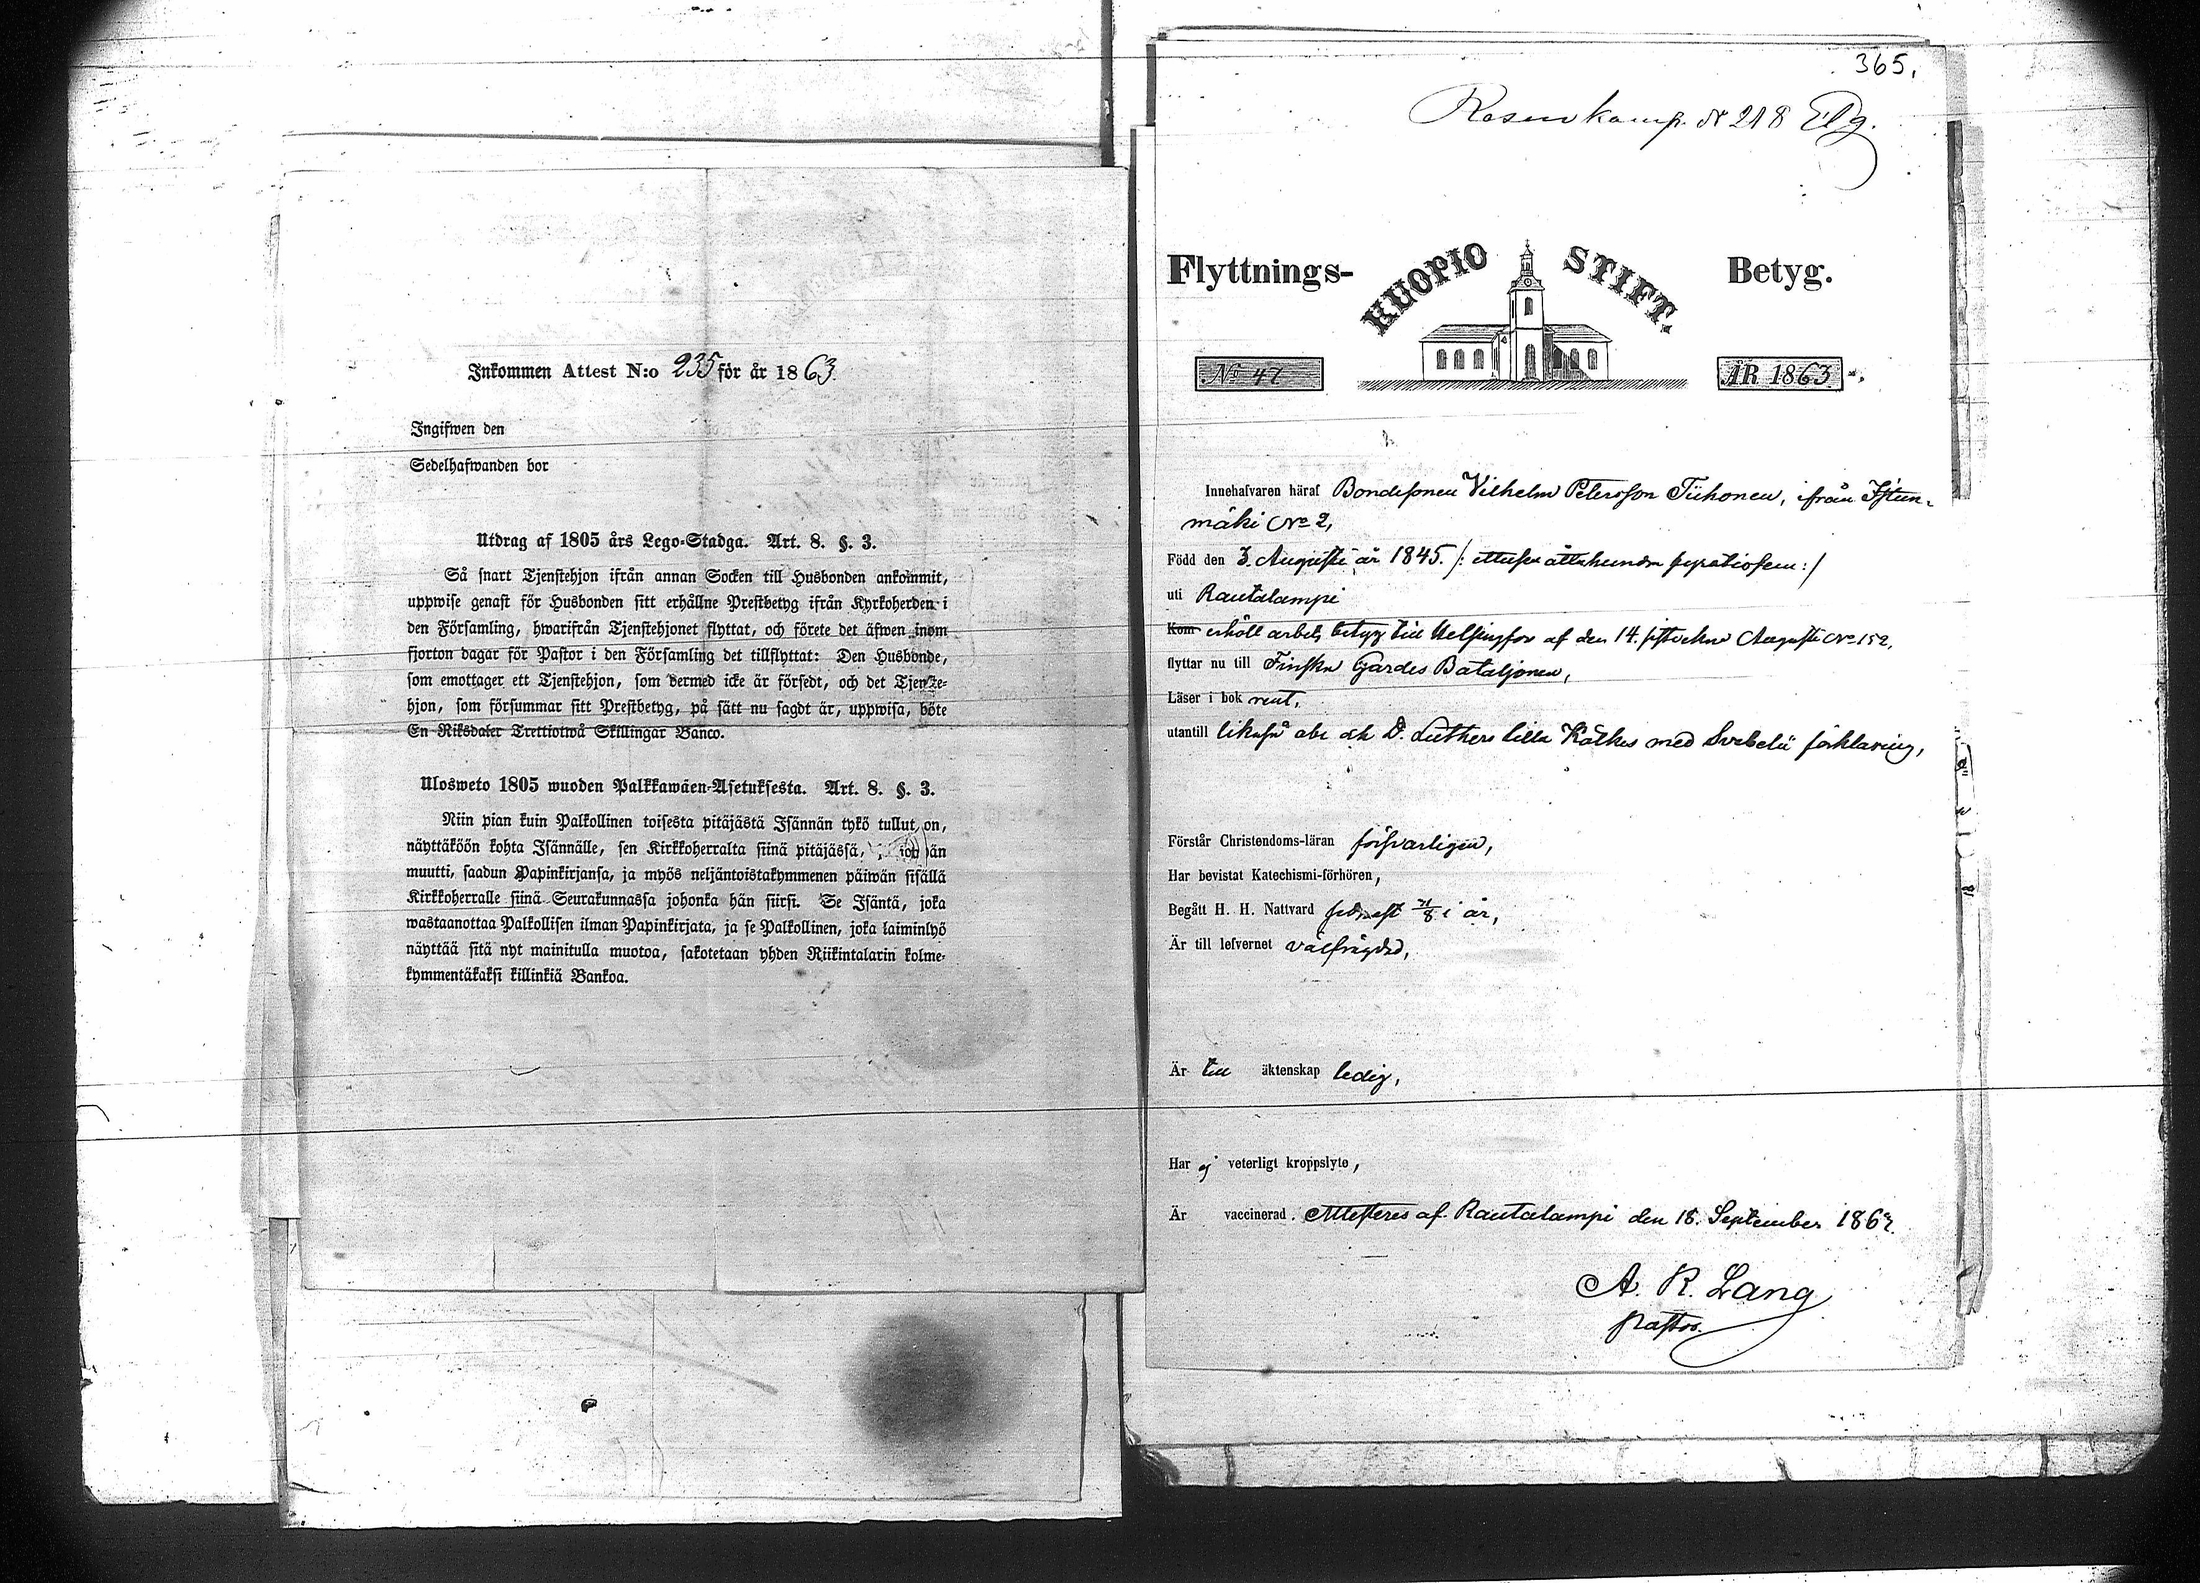 Inkommen Attest N:o 235 för år 1863.
Ingifwen den
Sedelhafwanden bor
Utdrag af 1805 års Lego-Stadga. Art. 8. §. 3.
Så snart Tjenstehjon ifrån annan Socken till Husbonden ankommit,
uppwise genast för Husbonden sitt erhållne Prestbetyg ifrån Kyrkoherden i
den Församling, hwarifrån Tjenstehjonet flyttat, och förete det äfwen inom
fjorton dagar för Pastor i den Församling det tillflyttat: Den Husbonde,
som emottager ett Tjenstehjon, som dermed icke är försedt, och det Tjenste-
hjon, som försummar sitt Prestbetyg, på sätt nu sagdt är, uppwisa, böte
En Riksdaler Trettiotwå Skillingar Banco.
Ulosweto 1805 wuoden Palkkawäen-Asetuksesta. Art. 8. §. 3.
Niin pian kuin Palkollinen toisesta pitäjästä Isännän tykö tullut on,
näyttäköön kohta Isännälle, sen Kirkkoherralta siinä pitäjässä, än
muutti, saadun Papinkirjansa, ja myös neljäntoistakymmenen päiwän sisällä
Kirkkoherralle siinä Seurakunnassa johonka hän siirsi. Se Isäntä, joka
wastaanottaa Palkollisen ilman Papinkirjata, ja se Palkollinen, joka laiminlyö
näyttää sitä nyt mainitulla muotoa, sakotetaan yhden Riikintalarin kolme-
kymmentäkaksi killinkiä Bankoa.
365.
Rosenkamp. N 218 Elg.
Flyttnings- KUOPIO STIFT. Betyg.
No 47 ÅR 1863
Innehafvaren häraf Bondesonen Vilhelm Petersson Tiihonen, ifrån Istun-
mäki No 2,
Född den 3. Augusti år 1845. /: ettusen åttahundra fyratiofem :/
uti Rautalampi
Kom erhöll arbets betyg till Helsingfors af den 14. sistvekne Augusti No 152,
flyttar nu till Finska Gardes Bataljonen,
Läser i bok rent,
utantill likaså abc och D. Luthers lilla Katkes med Svebelii förklaring,
Förstår Christendoms-läran försvarligen,
Har bevistat Katechismi-förhören,
Begått H. H. Nattvard senast 21/8 i år,
Är till lefvernet välfrägdad,
Är till äktenskap ledig,
Har ej veterligt kroppslyte,
Är vaccinerad. Attesteras af Rautalampi den 18. September 1863.
A. R. Lang
pastor.